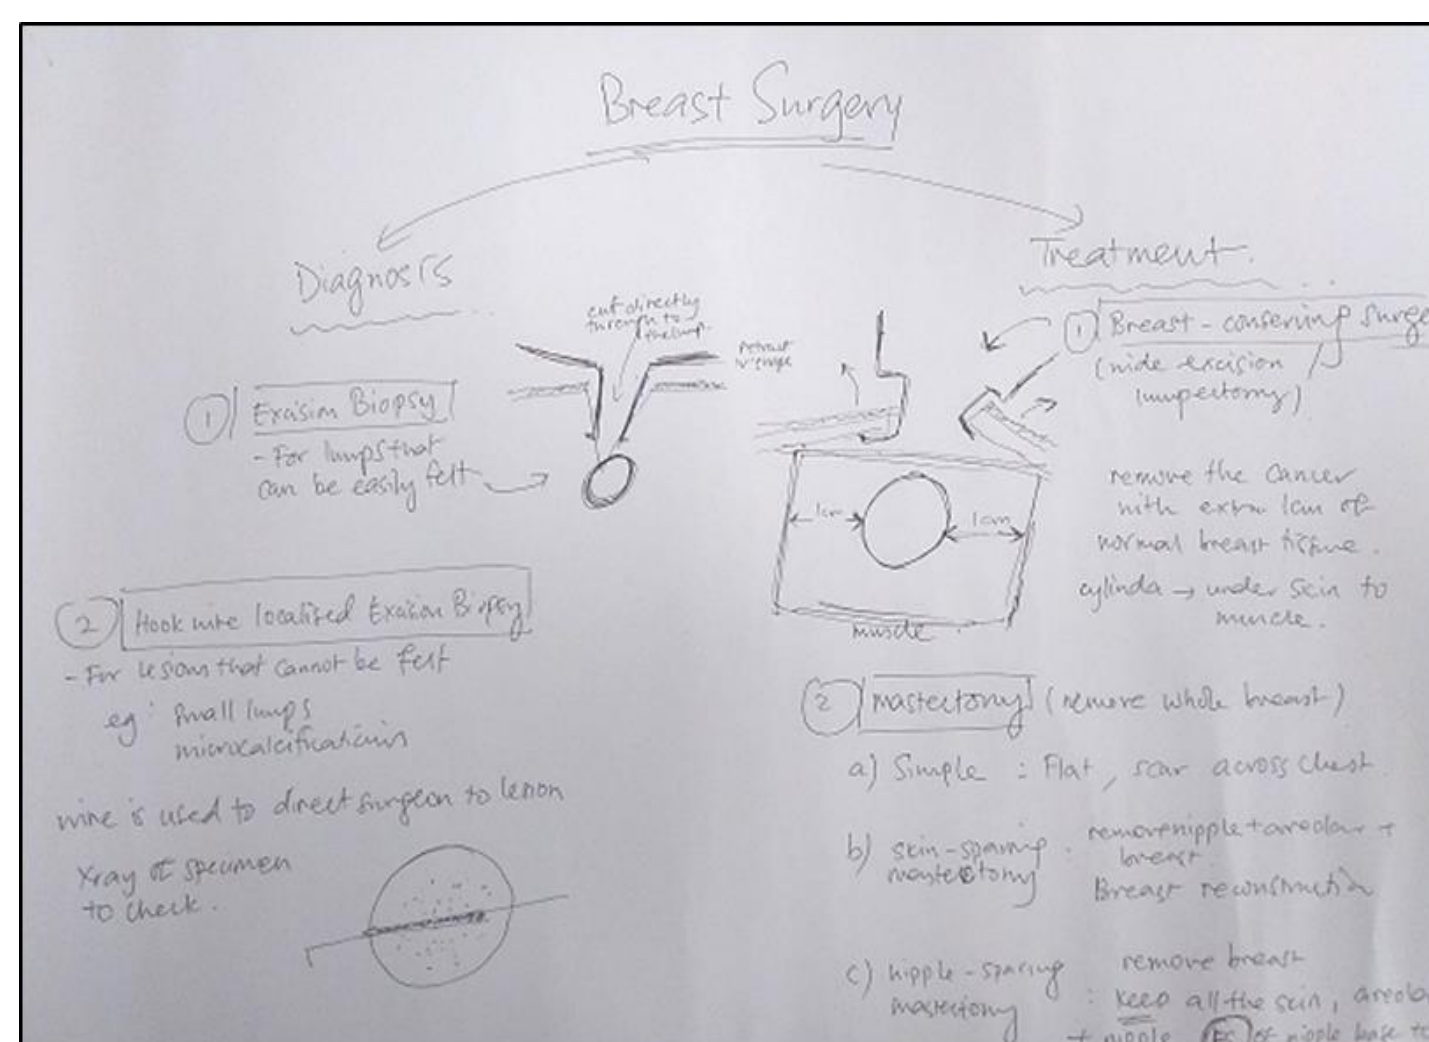 Breast Surgery
Diagnosis
cut directly
through to
the lump.
retract
1 Excision Biopsy
- For lumps that
can be easily felt
2 Hook wire localised Excision Biopsy
- For lesions that cannot be felt
eg: Small lumps
microcalcifications
wire is used to direct surgeon to lesion
Xray of specimen
to check.
Treatment.
1 Breast - conserving Surge
(wide excision /
lumpectomy)
1cm
1cm
muscle
remove the cancer
with extra 1cm of
normal breast tissue.
cylinda → under skin to
muscle.
2 mastectomy (remove whole breast)
a) Simple : Flat, scar across chest
b) skin-sparing : remove nipple + areolar +
mastectomy breast
Breast reconstruction
c) nipple-sparing remove breast
mastectomy : keep all the skin, areola
+ nipple of nipple base to